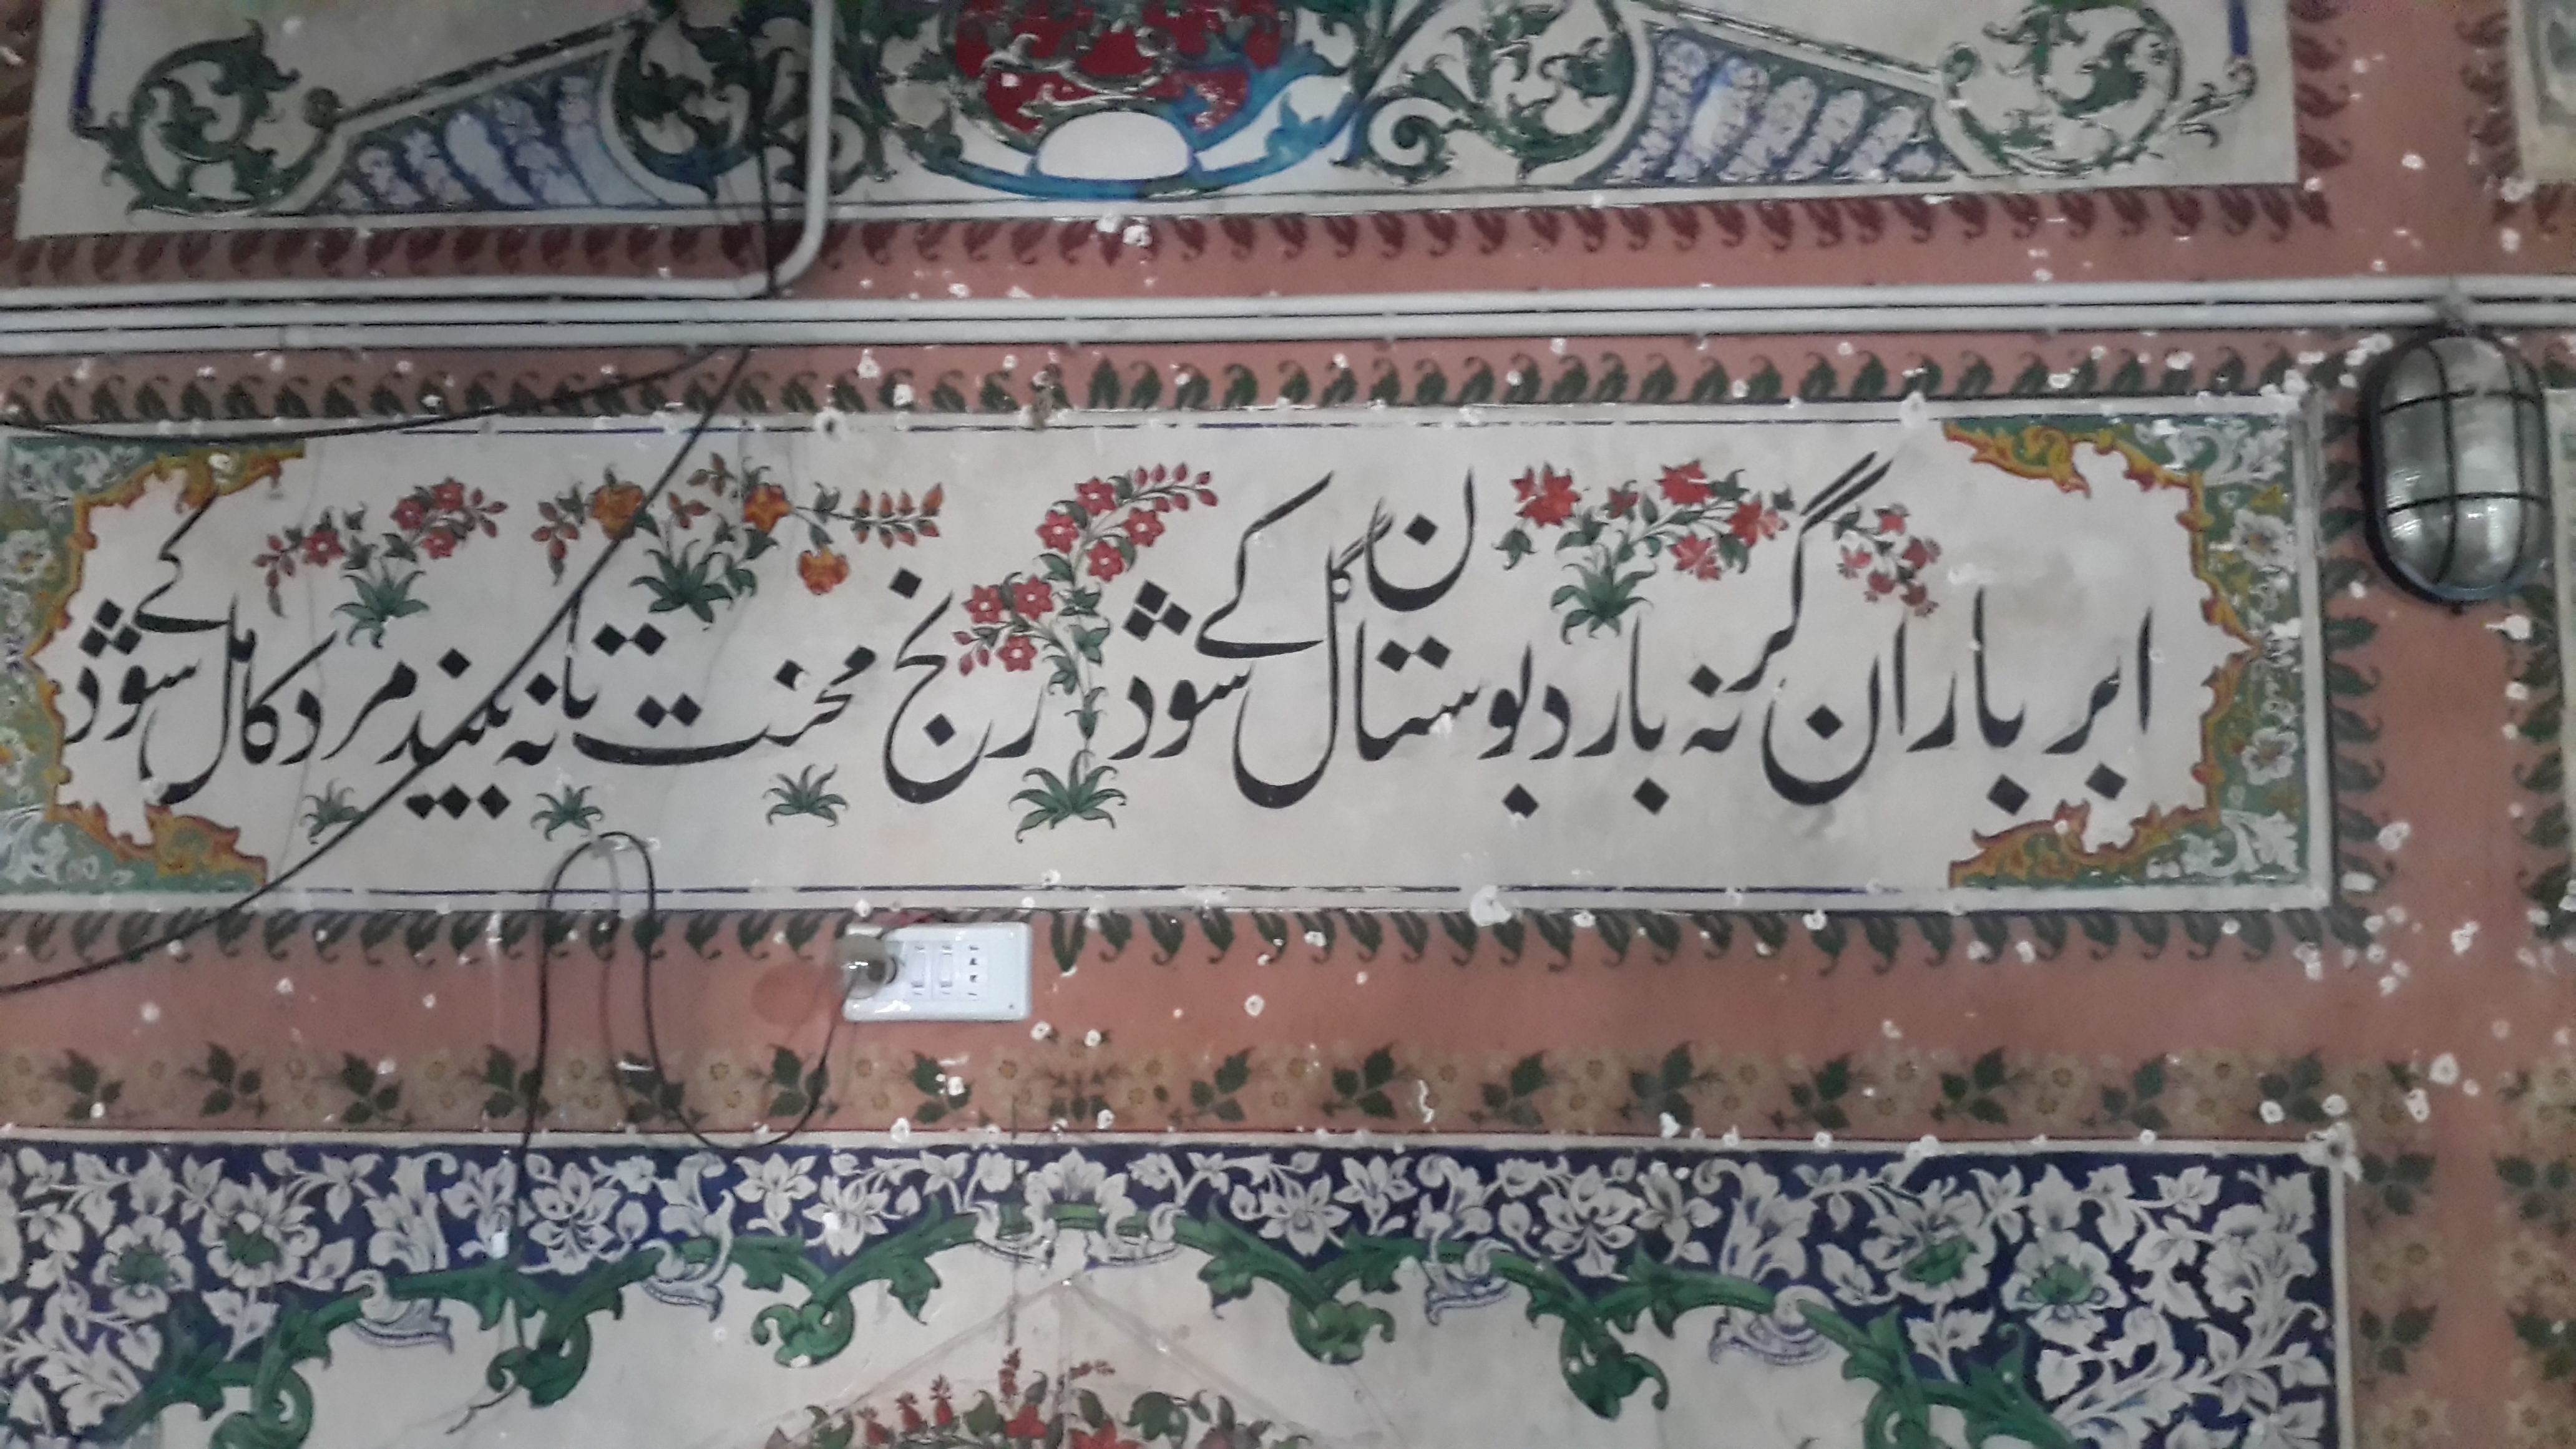 ابر باراں گر نہ بارد بوستاں گل کے شود رنج محنت تا نہ بیند مرد کامل کے شود